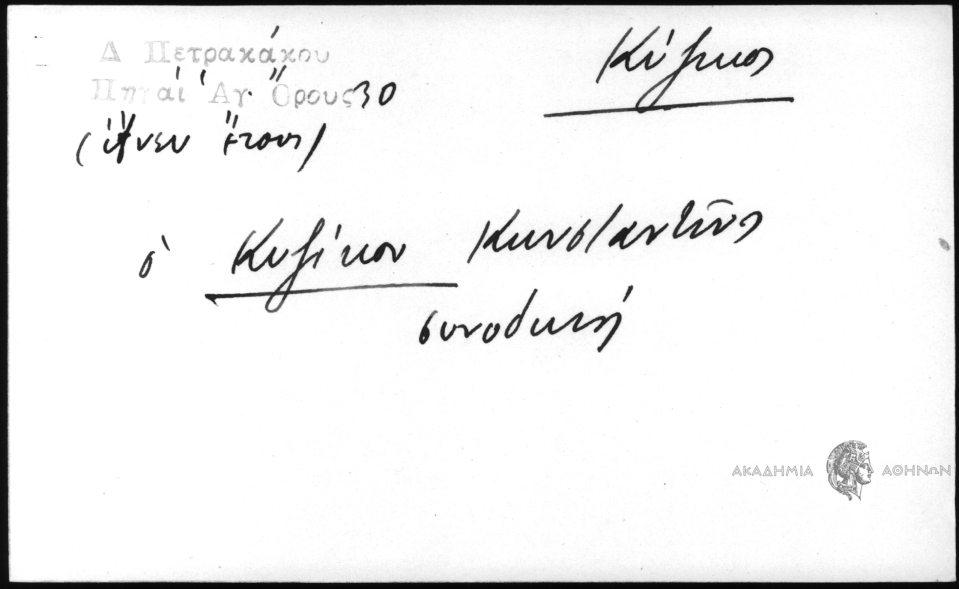 Δ Πετρακάκου
Πηγαί Ἁγ. Ὄρους 30
(ἄνευ ἔτους)
Κύζικος
ὁ Κυζίκου Κωνσταντῖνος
συνοδική
ΑΚΑΔΗΜΙΑ ΑΘΗΝΩΝ